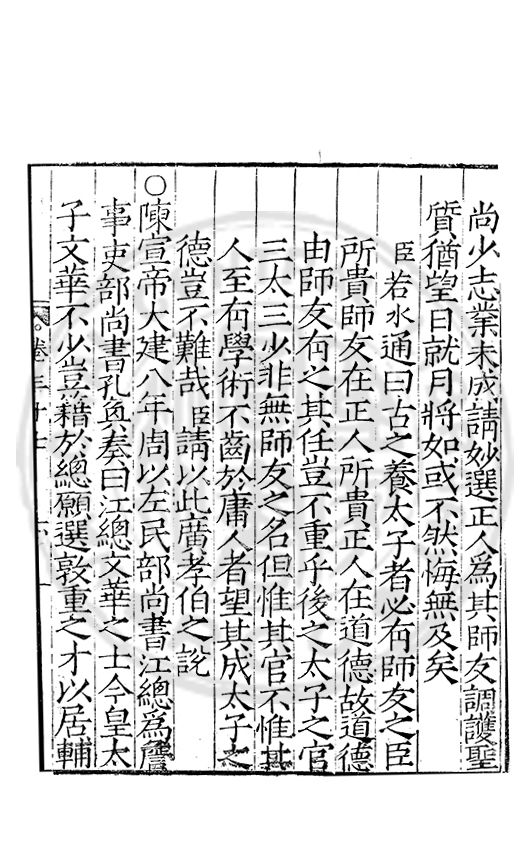 尚少志業未成請妙選正人爲其師友調護聖
質猶望日就月將如或不然悔無及矣
臣若水通曰古之養太子者必有師友之臣
所貴師友在正人所貴正人在道德故道德
由師友有之其任豈不重乎後之太子之官
三太三少非無師友之名但惟其官不惟其
人至有學術不齒於庸人者望其成太子之
德豈不難哉臣請以此廣孝伯之說
○陳宣帝大建八年周以左民部尚書江總爲詹
事吏部尚書孔奐奏曰江總文華之士今皇太
子文華不少豈籍於總願選敦重之才以居輔
卷三十七
六